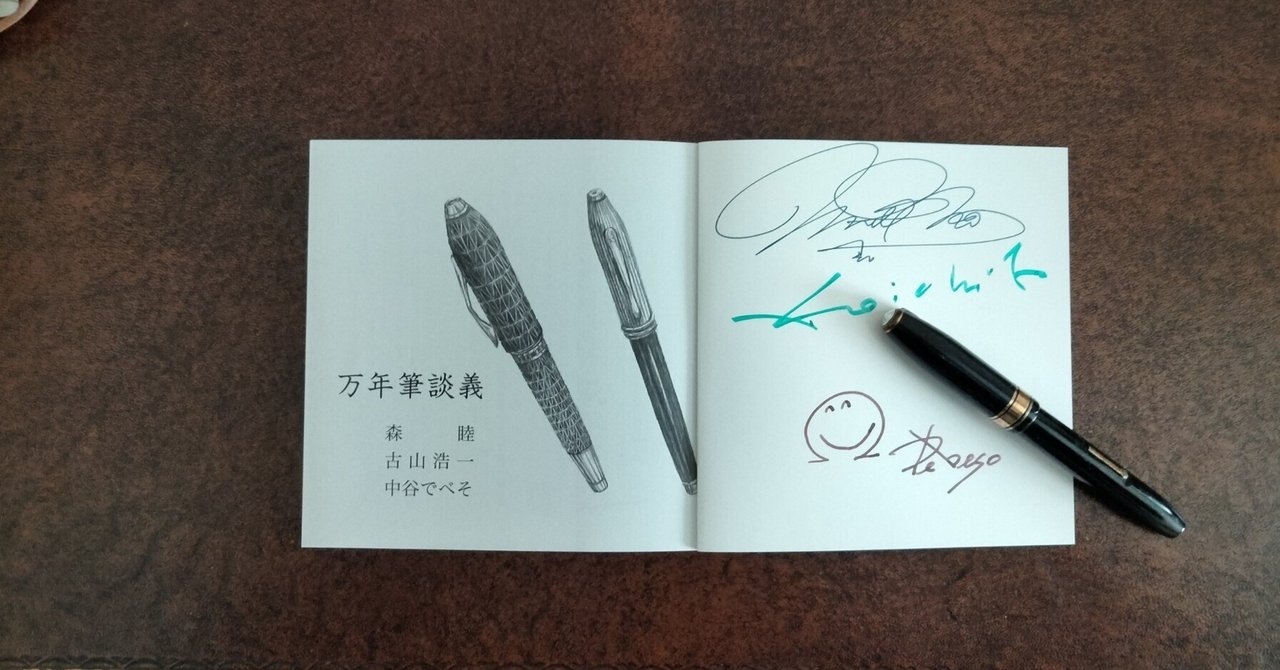 万年筆談義
森 睦
古山浩一
中谷でべそ
Koichi F